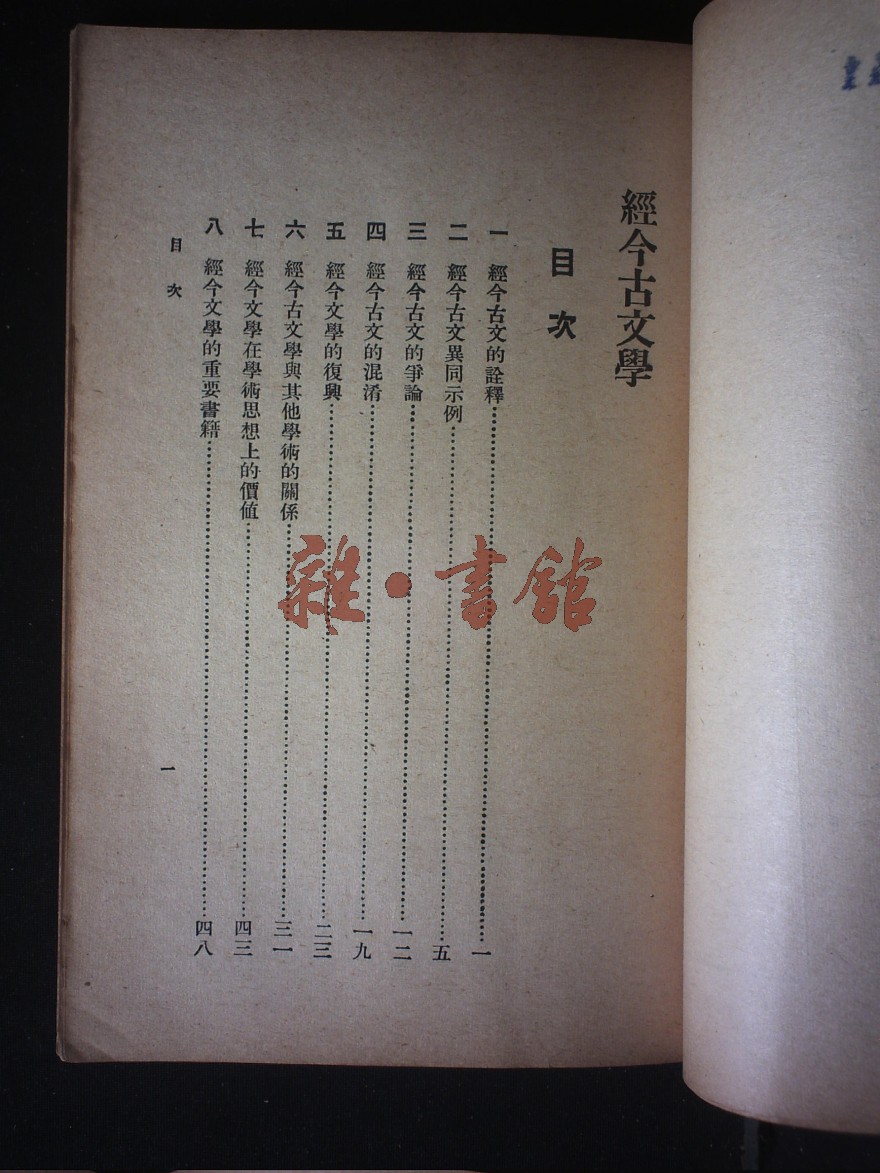 經今古文學
目次
一 經今古文的詮釋……一
二 經今古文異同示例……五
三 經今古文的爭論……一二
四 經今古文的混淆……一九
五 經今文學的復興……二三
六 經今古文學與其他學術的關係……三一
七 經今文學在學術思想上的價值……四三
八 經今文學的重要書籍……四八
目次
一
雜·書館